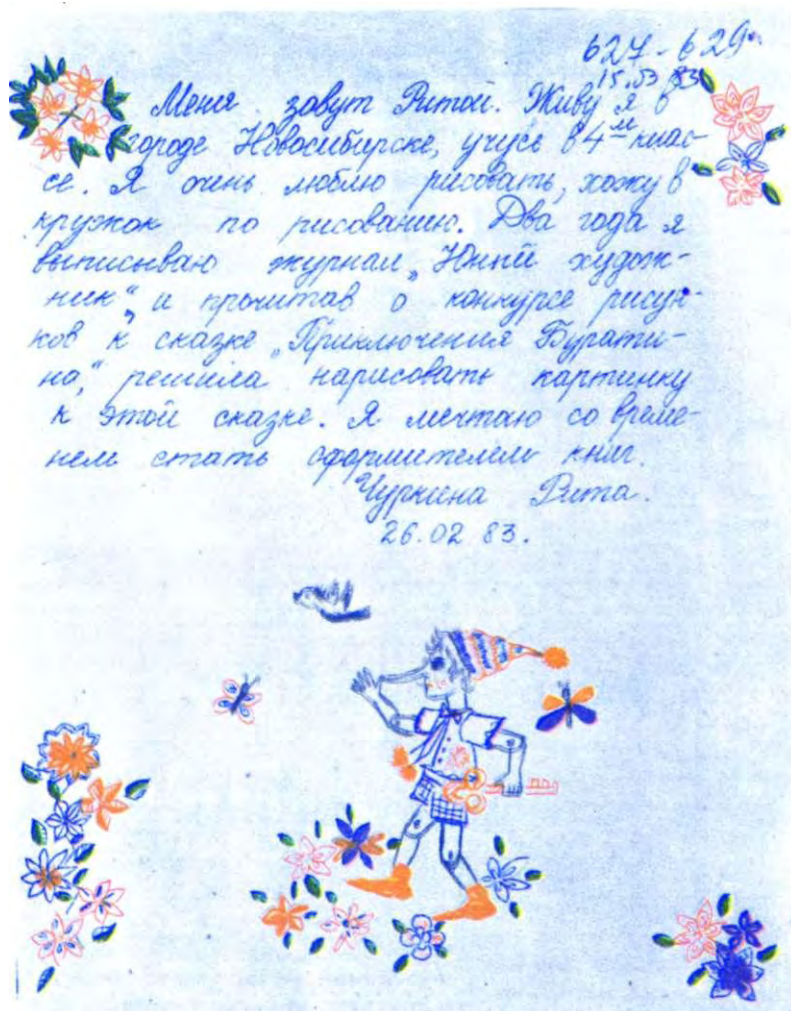 627-629
15.03.83
Меня зовут Ритой. Живу я в
городе Новосибирске, учусь в 4м клас-
се. Я очень люблю рисовать, хожу в
кружок по рисованию. Два года я
выписываю журнал „Юный худож-
ник“, и прочитав о конкурсе рисун-
ков к сказке „Приключения Бурати-
но,“ решила нарисовать картинку
к этой сказке. Я мечтаю со време-
нем стать оформителем книг.
Чуркина Рита.
26.02 83.